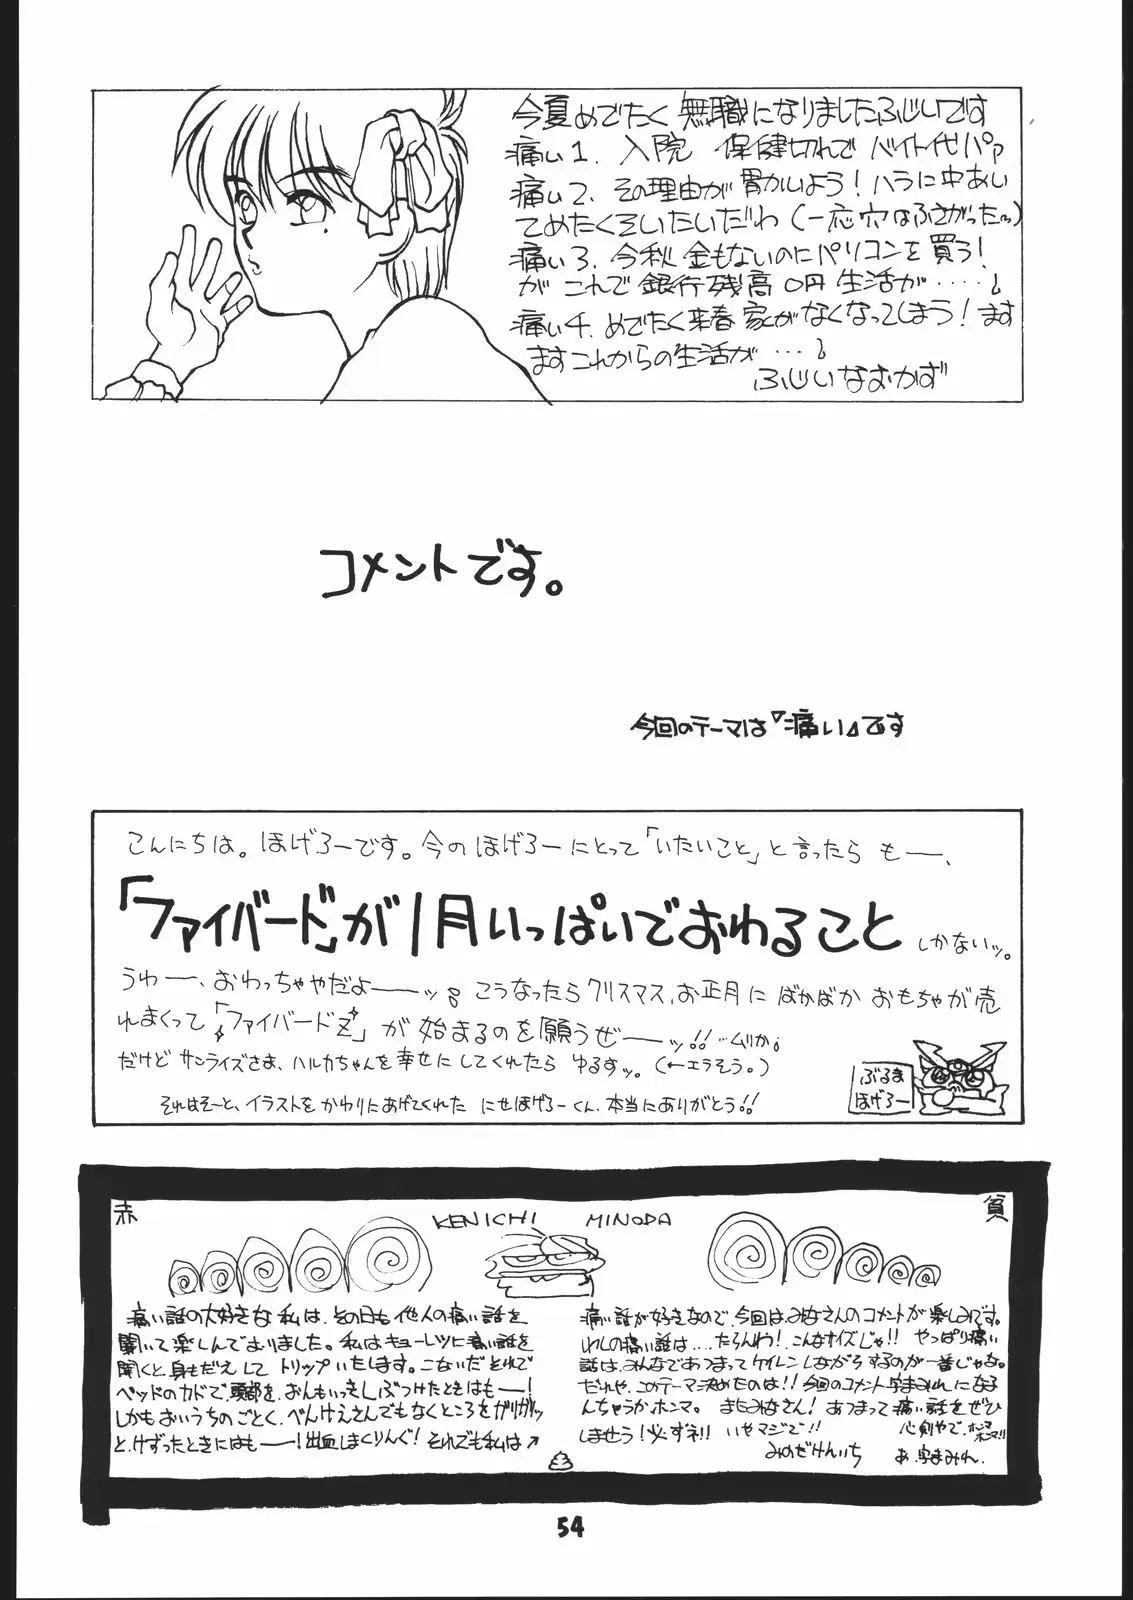 今夏めでたく無職になりましたふじいです
痛い1. 入院 保健切れで バイト代パァ
痛い2. その理由が胃かいよう!ハラに中あい
てめたくそいたいだわ(一応穴はふさがった〜)
痛い3. 今秋金もないのにパソコンを買う!
が これで銀行残高0円 生活が‥‥‥
痛い4. めでたく来春家がなくなってしまう!ます
ますこれからの生活が‥‥
ふじいなおかず
コメントです。
今回のテーマは『痛い』です
こんにちは。ほげろーです。今のほげろーにとって「いたいこと」と言ったら もー、
「ファイバード」が1月いっぱいでおわること しかないッ。
うわー、おわっちゃやだよーーッ。こうなったらクリスマス、お正月に ばかばか おもちゃが売
れまくって「ファイバードZ」が始まるのを願うぜーーッ!! …ムリか。
だけど サンライズさま、ハルカちゃんを幸せにしてくれたら ゆるすッ。(←エラそう。)
それはそーと、イラストをかわりにあげてくれた にせほげろーくん、本当にありがとう!!
ぶるま
ほげろー
赤
KENICHI MINODA
貧
痛い話の大好きな私は、その日も他人の痛い話を
聞いて楽しんでおりました。私はキョーレツに痛い話を
聞くと、身もだえして トリップいたします。こないだそれで
ベッドのカドで、頭部を、おんもいっきしぶつけたときはもー!
しかもおいうちのごとく、べんけえさんでもなくところをガリガリッ
と、けずったときにはもー!出血しまくりんぐ!それでも私は↗
痛い話が好きなので、今回は、みなさんのコメントが楽しみです。
わしの痛い話は‥‥たらんわ!こんなサイズじゃ!! やっぱり痛い
話は、みんなであつまってケイレンしながらするのが一番じゃな。
だれや、このテーマ決めたのは!! 今回のコメント字まみれになる
んちゃうか、ホンマ。 またみなさん!あつまって痛い話をぜひ
しませう!必ずネ!! いやマジで!! 心剣やで、ホンマホンマ!!
みのだけんいち
あ、字まみれ。
54